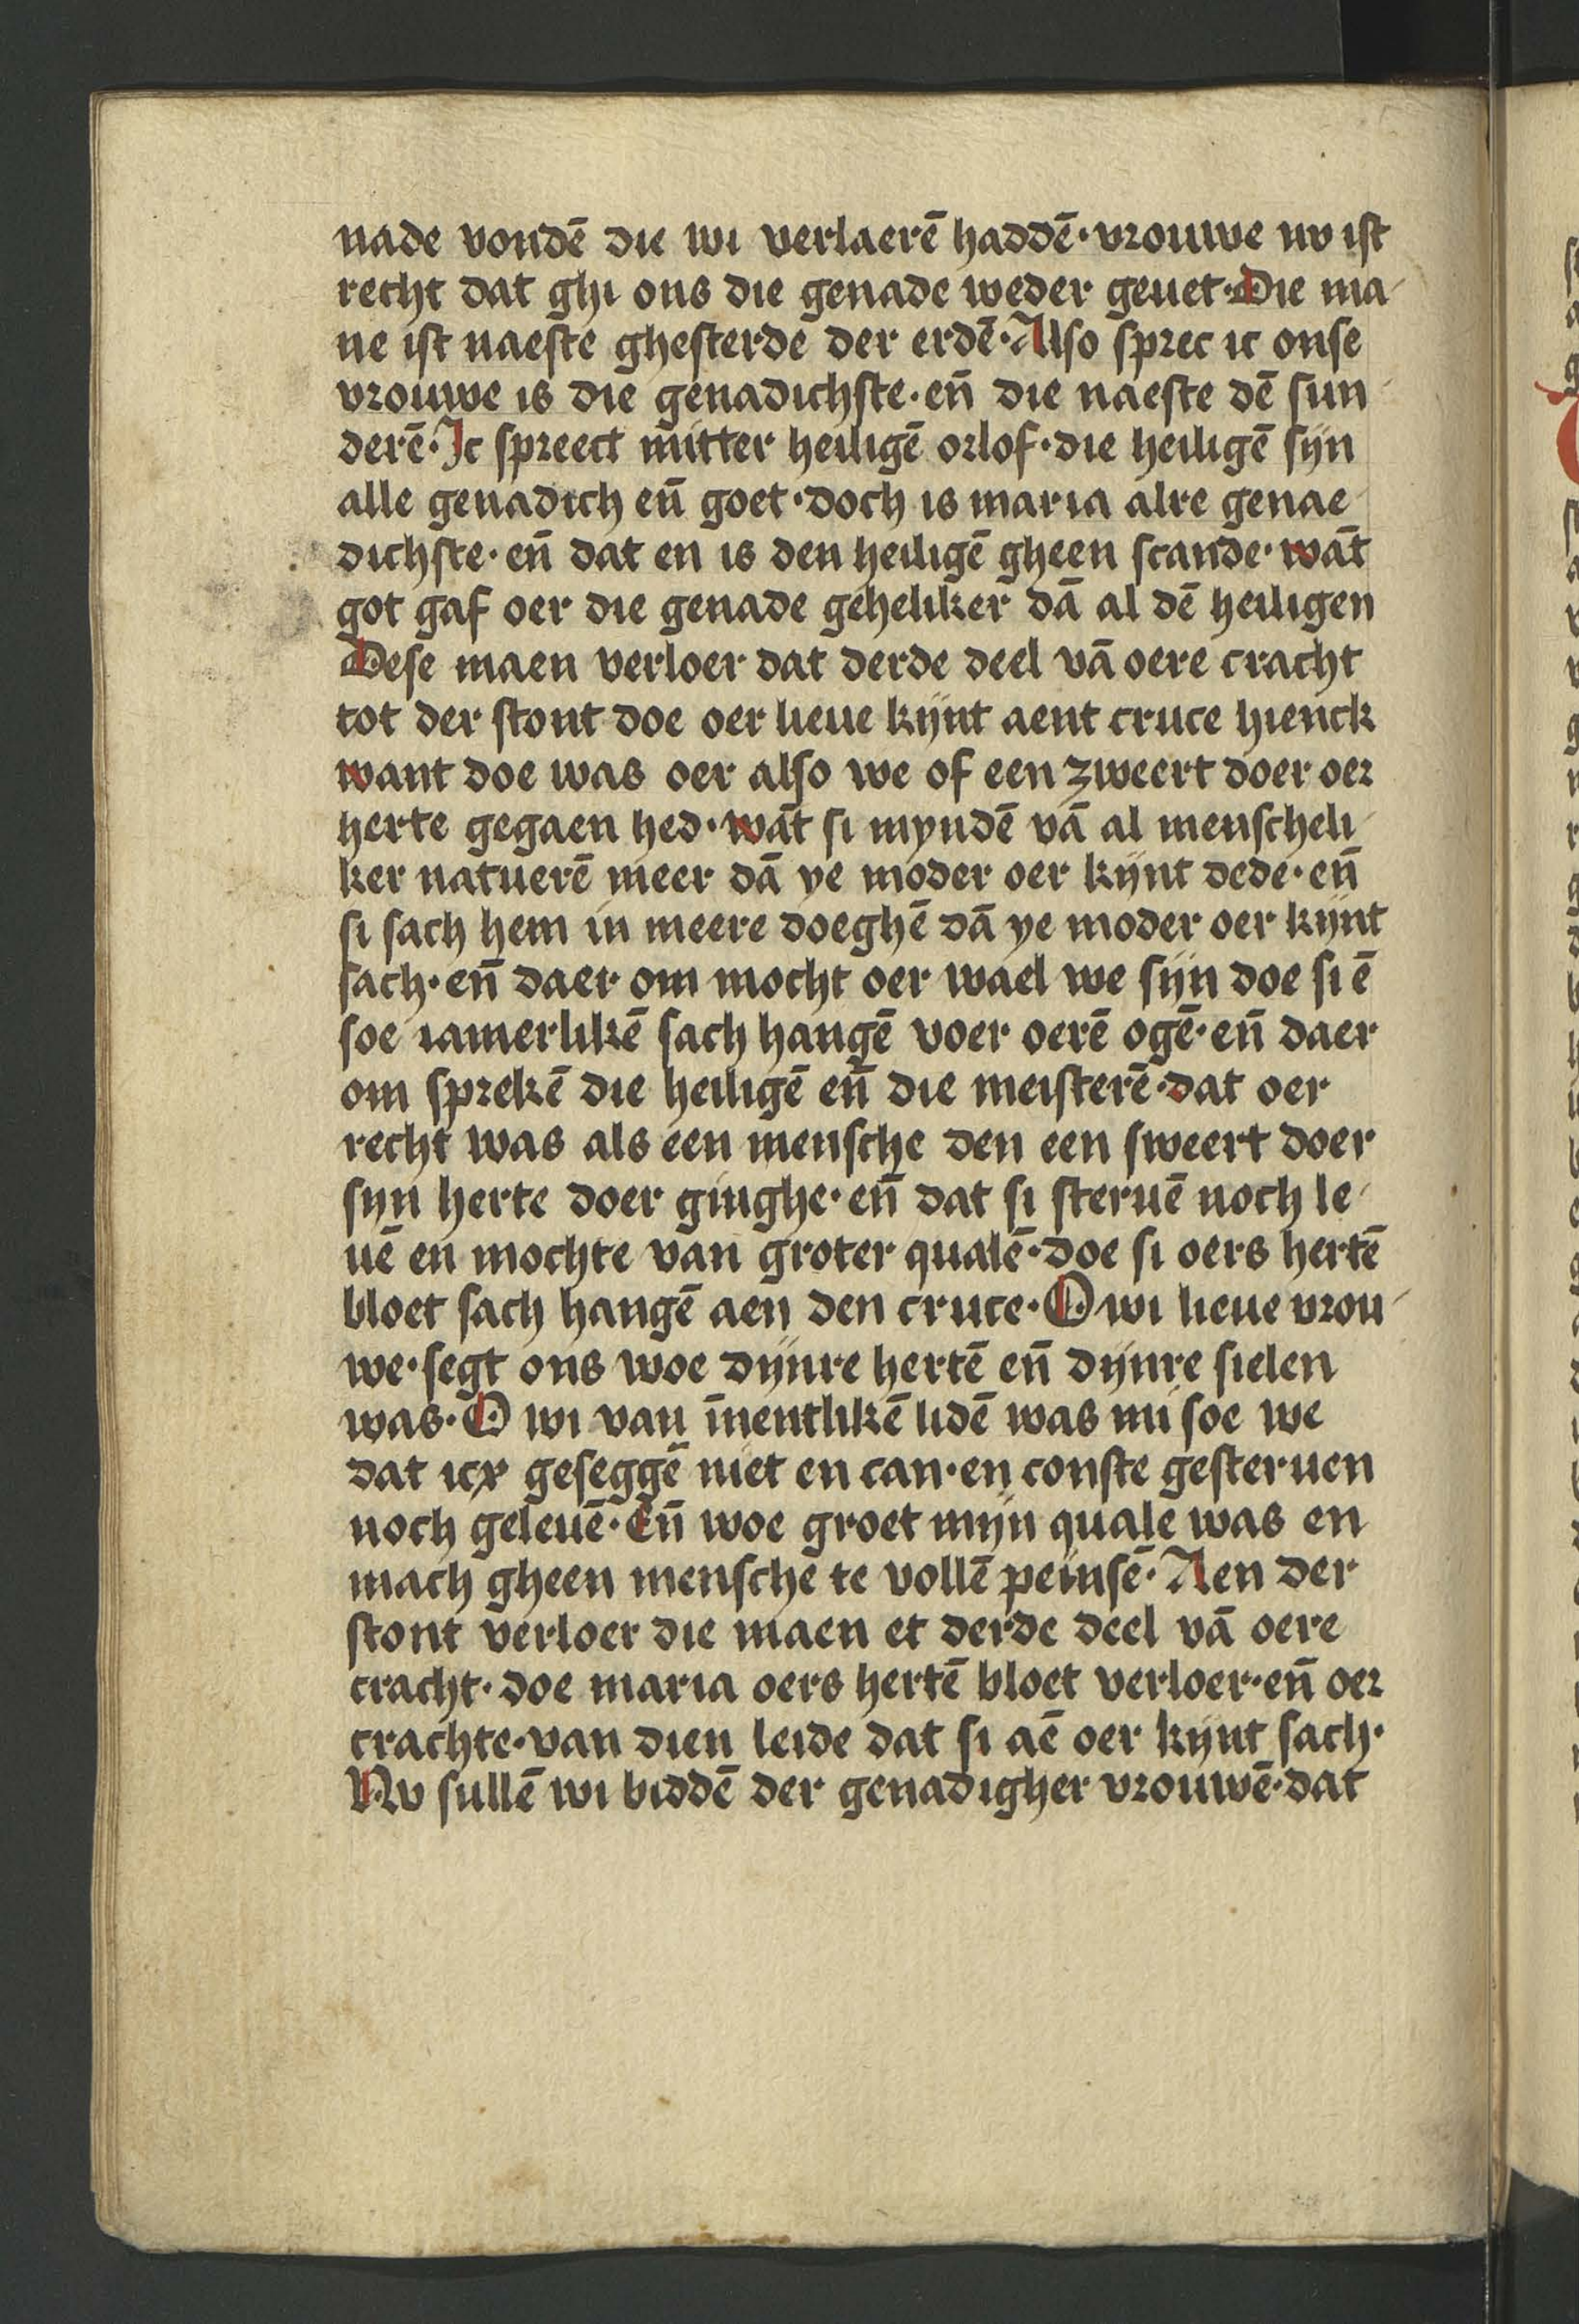 nade vondē die wi verlaerē haddē· vrouwe nv ist
recht dat ghi ons die genade weder geuet· Die ma-
ne ist naeste ghesterde der erdē· Also sprec ic onse
vrouwe is die genadichste· en̄ die naeste dē sun-
derē· Ic spreect mitter heiligē orlof· die heiligē sijn
alle genadich en̄ goet· doch is maria alre genae-
dichste· en̄ dat en is den heiligē gheen scande· wāt
got gaf oer die genade geheliker dā al dē heiligen
Dese maen verloer dat derde deel vā oere cracht
tot der stont doe oer lieue kijnt aent cruce hienck
want doe was oer also we of een zweert doer oer
herte gegaen hed· wāt si mẏndē vā al menscheli-
ker natuerē meer dā ye moder oer kijnt dede· en̄
si sach hem in meere doeghē dā ye moder oer kijnt
sach· en̄ daer om mocht oer wael we sijn doe si ē
soe iamerlikē sach hangē voer oerē ogē· en̄ daer
om sprekē die heiligē en̄ die meisterē· dat oer
recht was als een mensche den een sweert doer
syn herte doer ginghe· en̄ dat si steruē noch le-
uē en mochte van groter qualē· doe si oers hertē
bloet sach hangē aen den cruce· O wi lieue vrou-
we· segt ons woe dijnre hertē en̄ dijnre sielen
was· O wi van īnentlikē lidē was mi soe we
dat icx geseggē niet en can· en conste gesteruen
noch geleuē· En̄ woe groet mijn quale was en
mach gheen mensche te vollē peinsē· Aen der
stont verloer die maen et derde deel vā oere
cracht· doe maria oers hertē bloet verloer· en̄ oer
crachte· van dien leide dat si aē oer kijnt sach·
Nv sullē wi biddē der genadigher vrouwē· dat